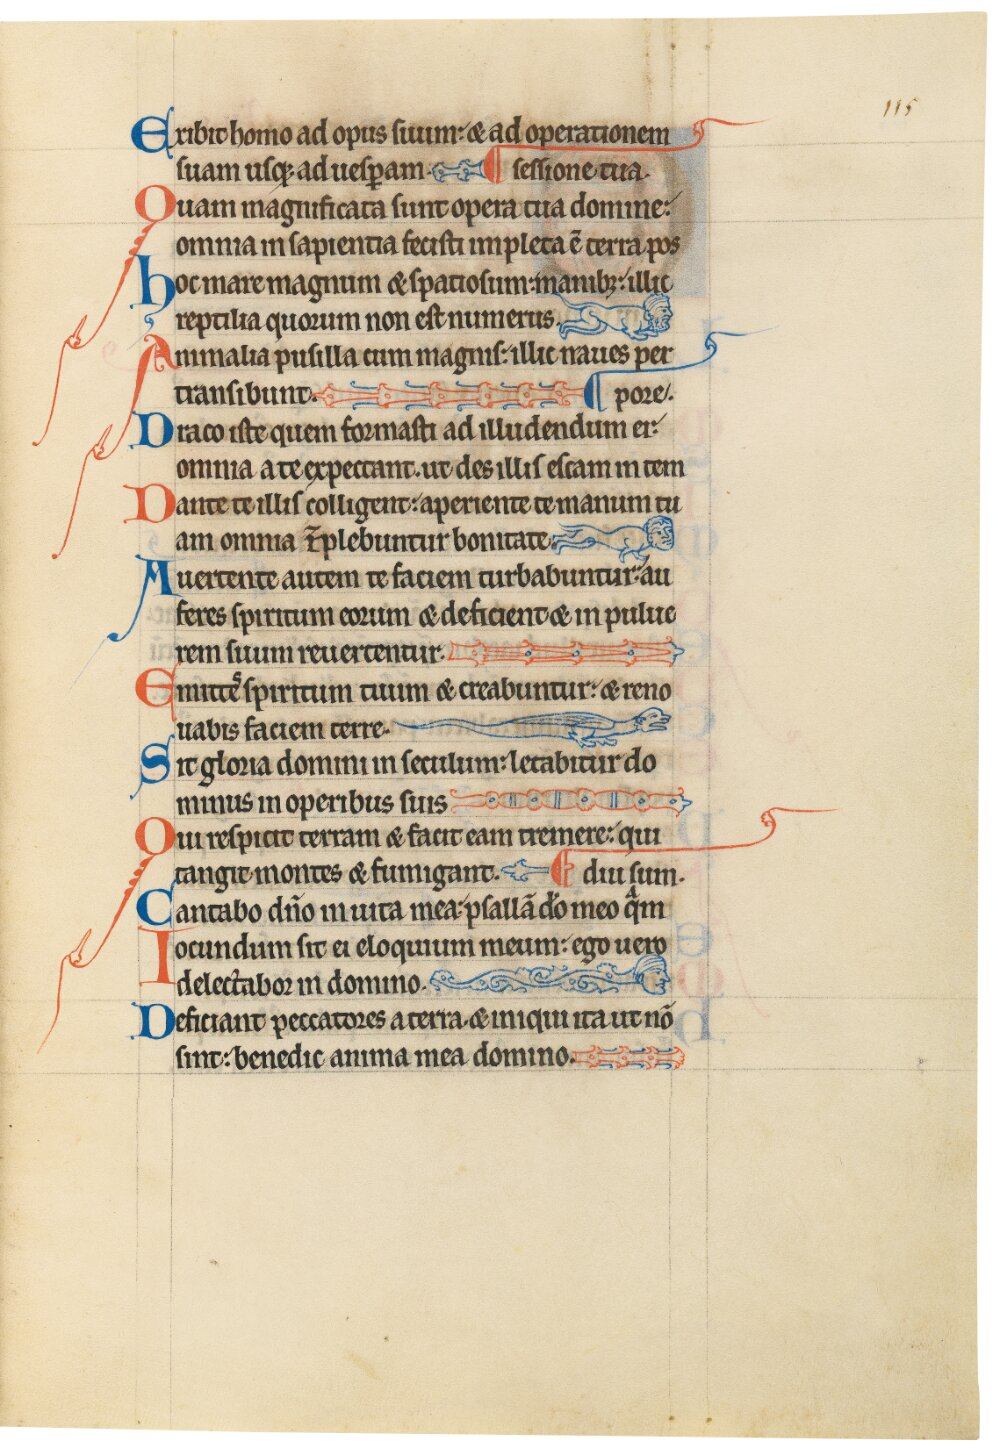 115
Exibit homo ad opus suum: & ad operationem
suam usq; ad uesꝑam. sessione tua.
Quam magnificata sunt opera tua domine:
omnia in sapientia fecisti impleta ē terra pos
hoc mare magnum & spatiosum: manibꝫ: illic
reptilia quorum non est numerus.
Animalia pusilla cum magnis: illic naues per
transibunt. pore.
Draco iste quem formasti ad illudendum ei:
omnia a te expectant. ut des illis escam in tem
Dante te illis colligent: aperiente te manum tu
am omnia īplebuntur bonitate.
Auertente autem te faciem turbabuntur: au
feres spiritum eorum & deficient & in pulue
rem suum reuertentur.
Emitte spiritum tuum & creabuntur: & reno
uabis faciem terre.
Sit gloria domini in seculum: letabitur do
minus in operibus suis
Qui respicit terram & facit eam tremere: qui
tangit montes & fumigant. diu sum.
Cantabo dño in uita mea: psallā do meo qᵃm
Iocundum sit ei eloquium meum: ego uero
delectabor in domino.
Deficiant peccatores a terra. & iniqui ita ut nō
sint: benedic anima mea domino.